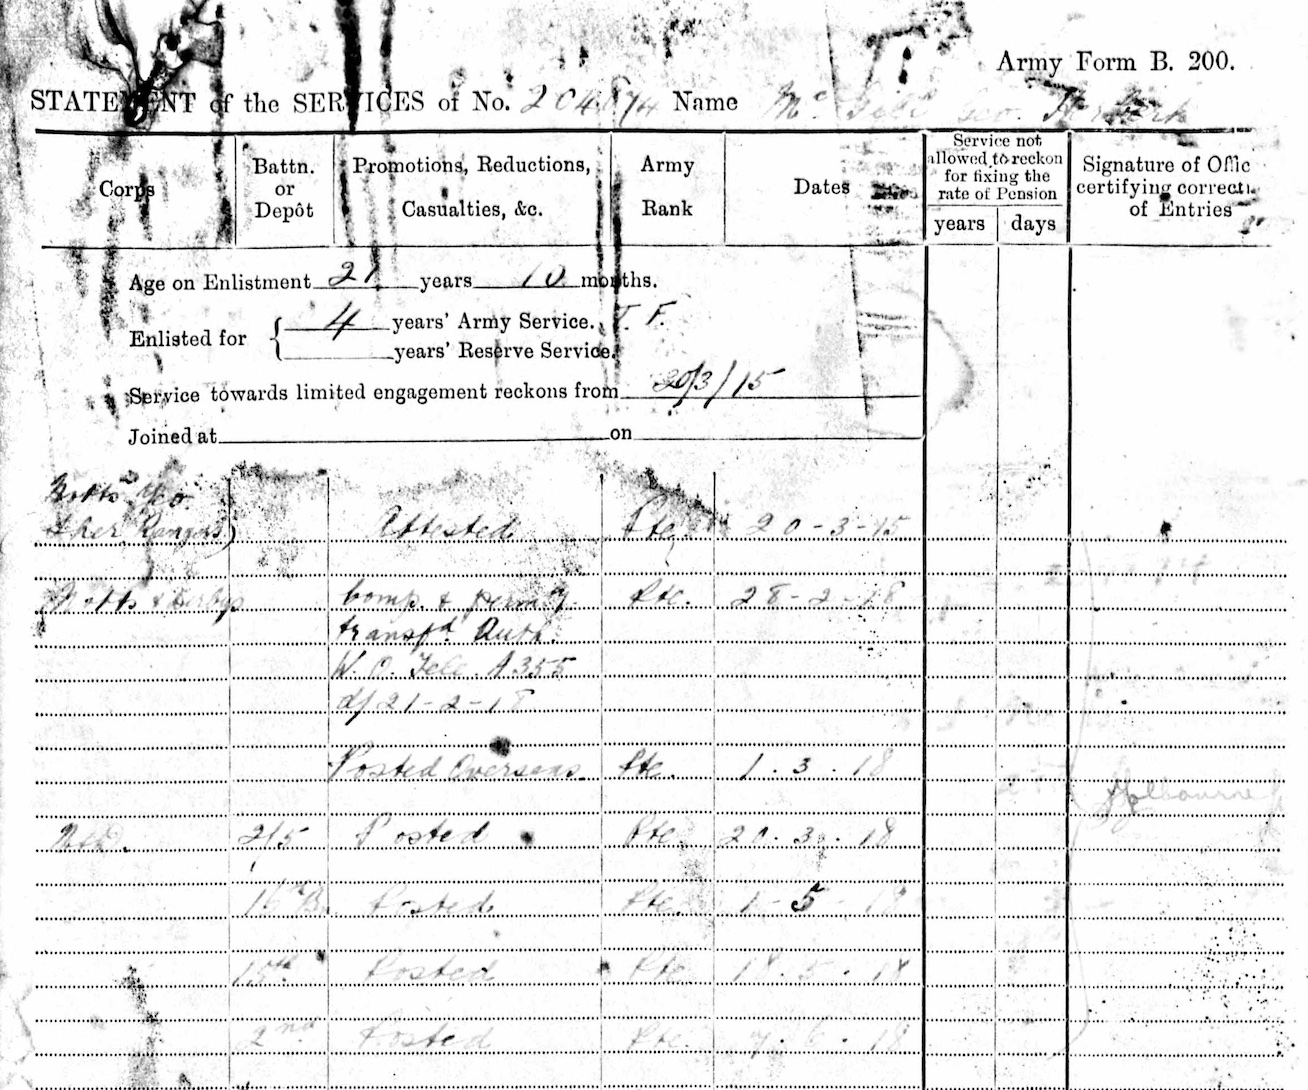 Army Form B. 200.
STATEMENT of the SERVICES of No. 204874 Name Mc Geo. Herbert
Corps
Battn.
or
Depôt
Promotions, Reductions,
Casualties, &c.
Army
Rank
Dates
Service not
allowed to reckon
for fixing the
rate of Pension
years days
Signature of Offic
certifying correct
of Entries
Age on Enlistment 21 years 10 months.
Enlisted for { 4 years' Army Service. T. F.
years' Reserve Service.
Service towards limited engagement reckons from 20/3/15
Joined at on
Notts Yeo
Sher Rangers) Attested Pte. 20-3-15
Notts & Derbys Comp. & perm'y. Pte. 28-2-18
transf'd. Auth.
W.O. A 355
d/ 21-2-18
Posted Overseas. Pte. 1.3.18
N&D. 2/5 Posted Pte. 20.3.18
16th B. Posted Pte. 1-5-18
15th Posted Pte. 18.5.18
2nd Posted Pte. 7.6.18